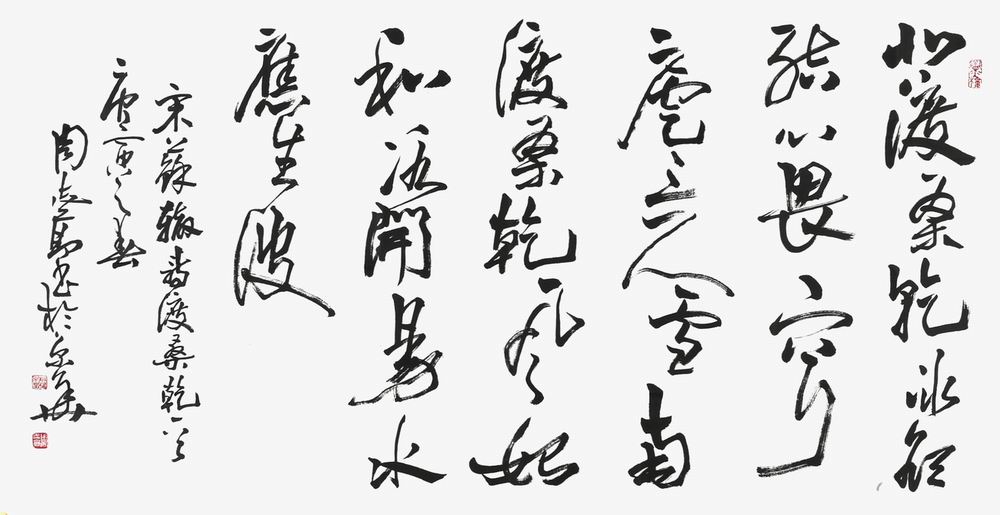 北渡桑乾冰欲
結心畏穹
廬三尺雪南
渡桑乾風始
和冰開易水
應生波
宋蘇轍詩渡桑乾一首
庚寅之春
周志高書於京華